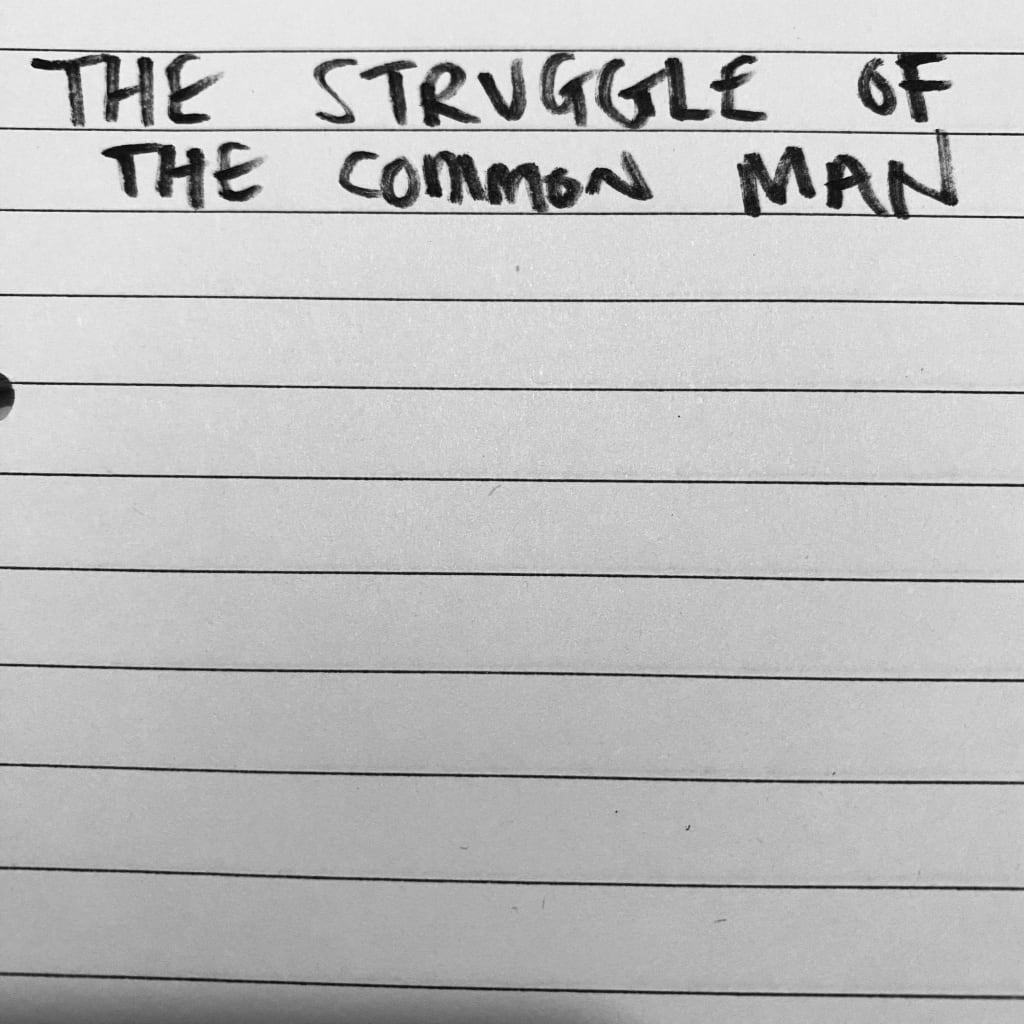 THE STRUGGLE OF
THE COMMON MAN